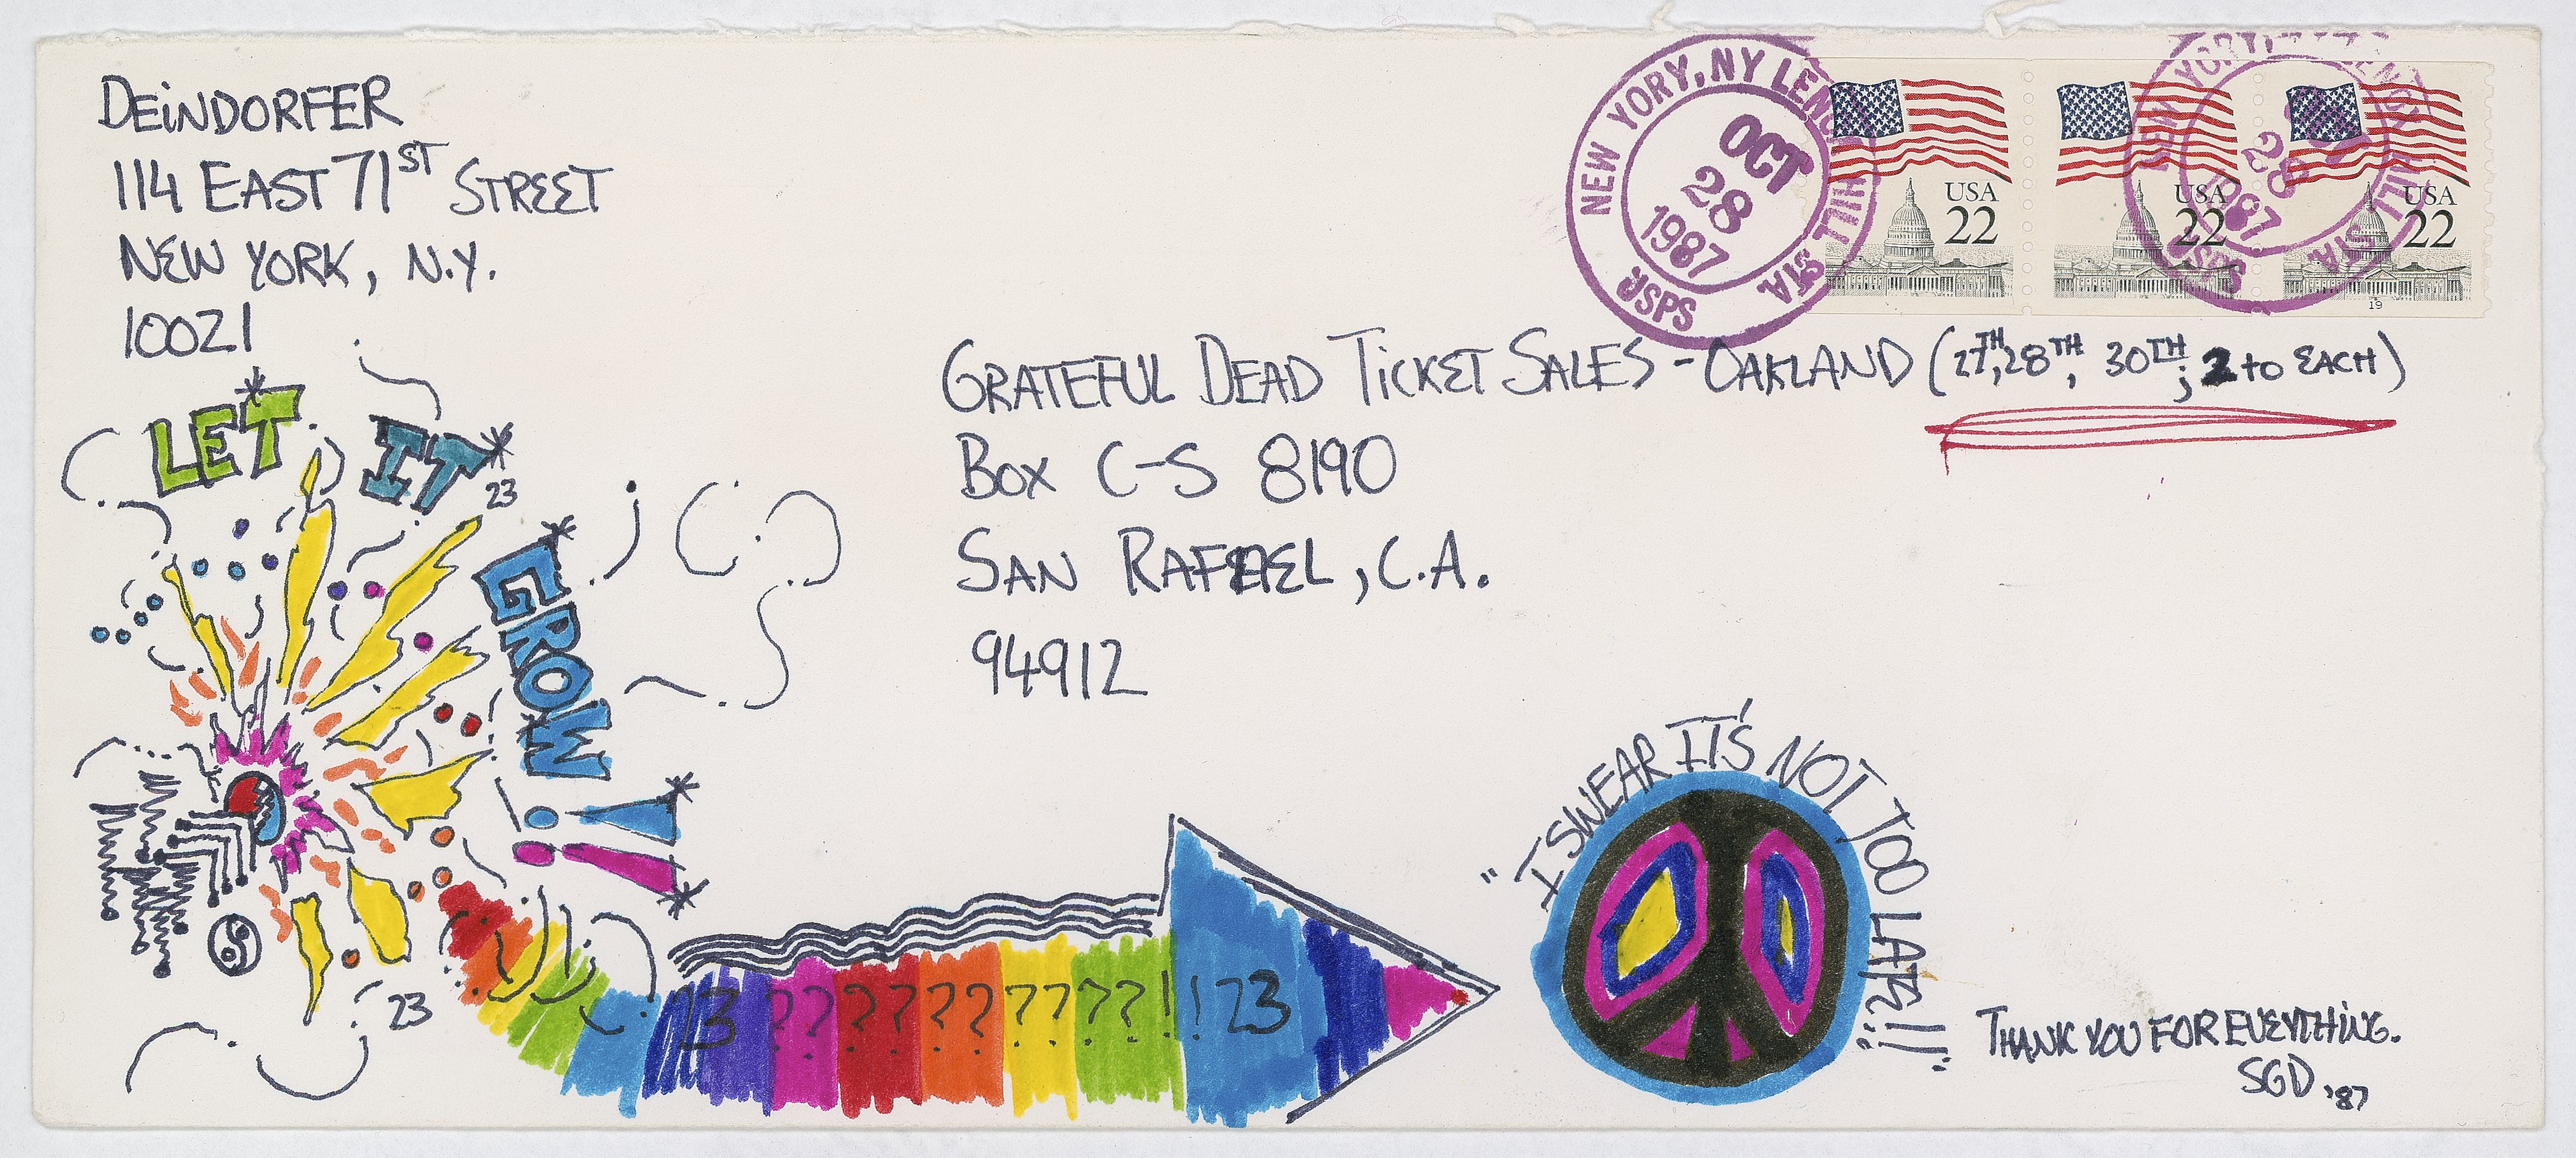 DEiNDORFER
114 EAST 71ST STREET
NEW YORK, N.Y.
10021
NEW YORY, NY LENOX HILL STA
OCT
28
1987
USPS
USA
22
USA
22
USA
22
19
NEW YORY, NY LENOX HILL STA
28
1987
USPS
GRATEFUL DEAD TiCKET SALES - OAKLAND (27TH, 28TH, 30TH; 2 to EACH)
BOX C-S 8190
SAN RAFAEL, C.A.
94912
LET IT
23
GROW!!
23
23 ?? ?? ?? ?? ??! !23
"I SWEAR IT'S NOT TOO LATE!!!"
THANK YOU FOR EVEYTHiNG.
SGD, '87